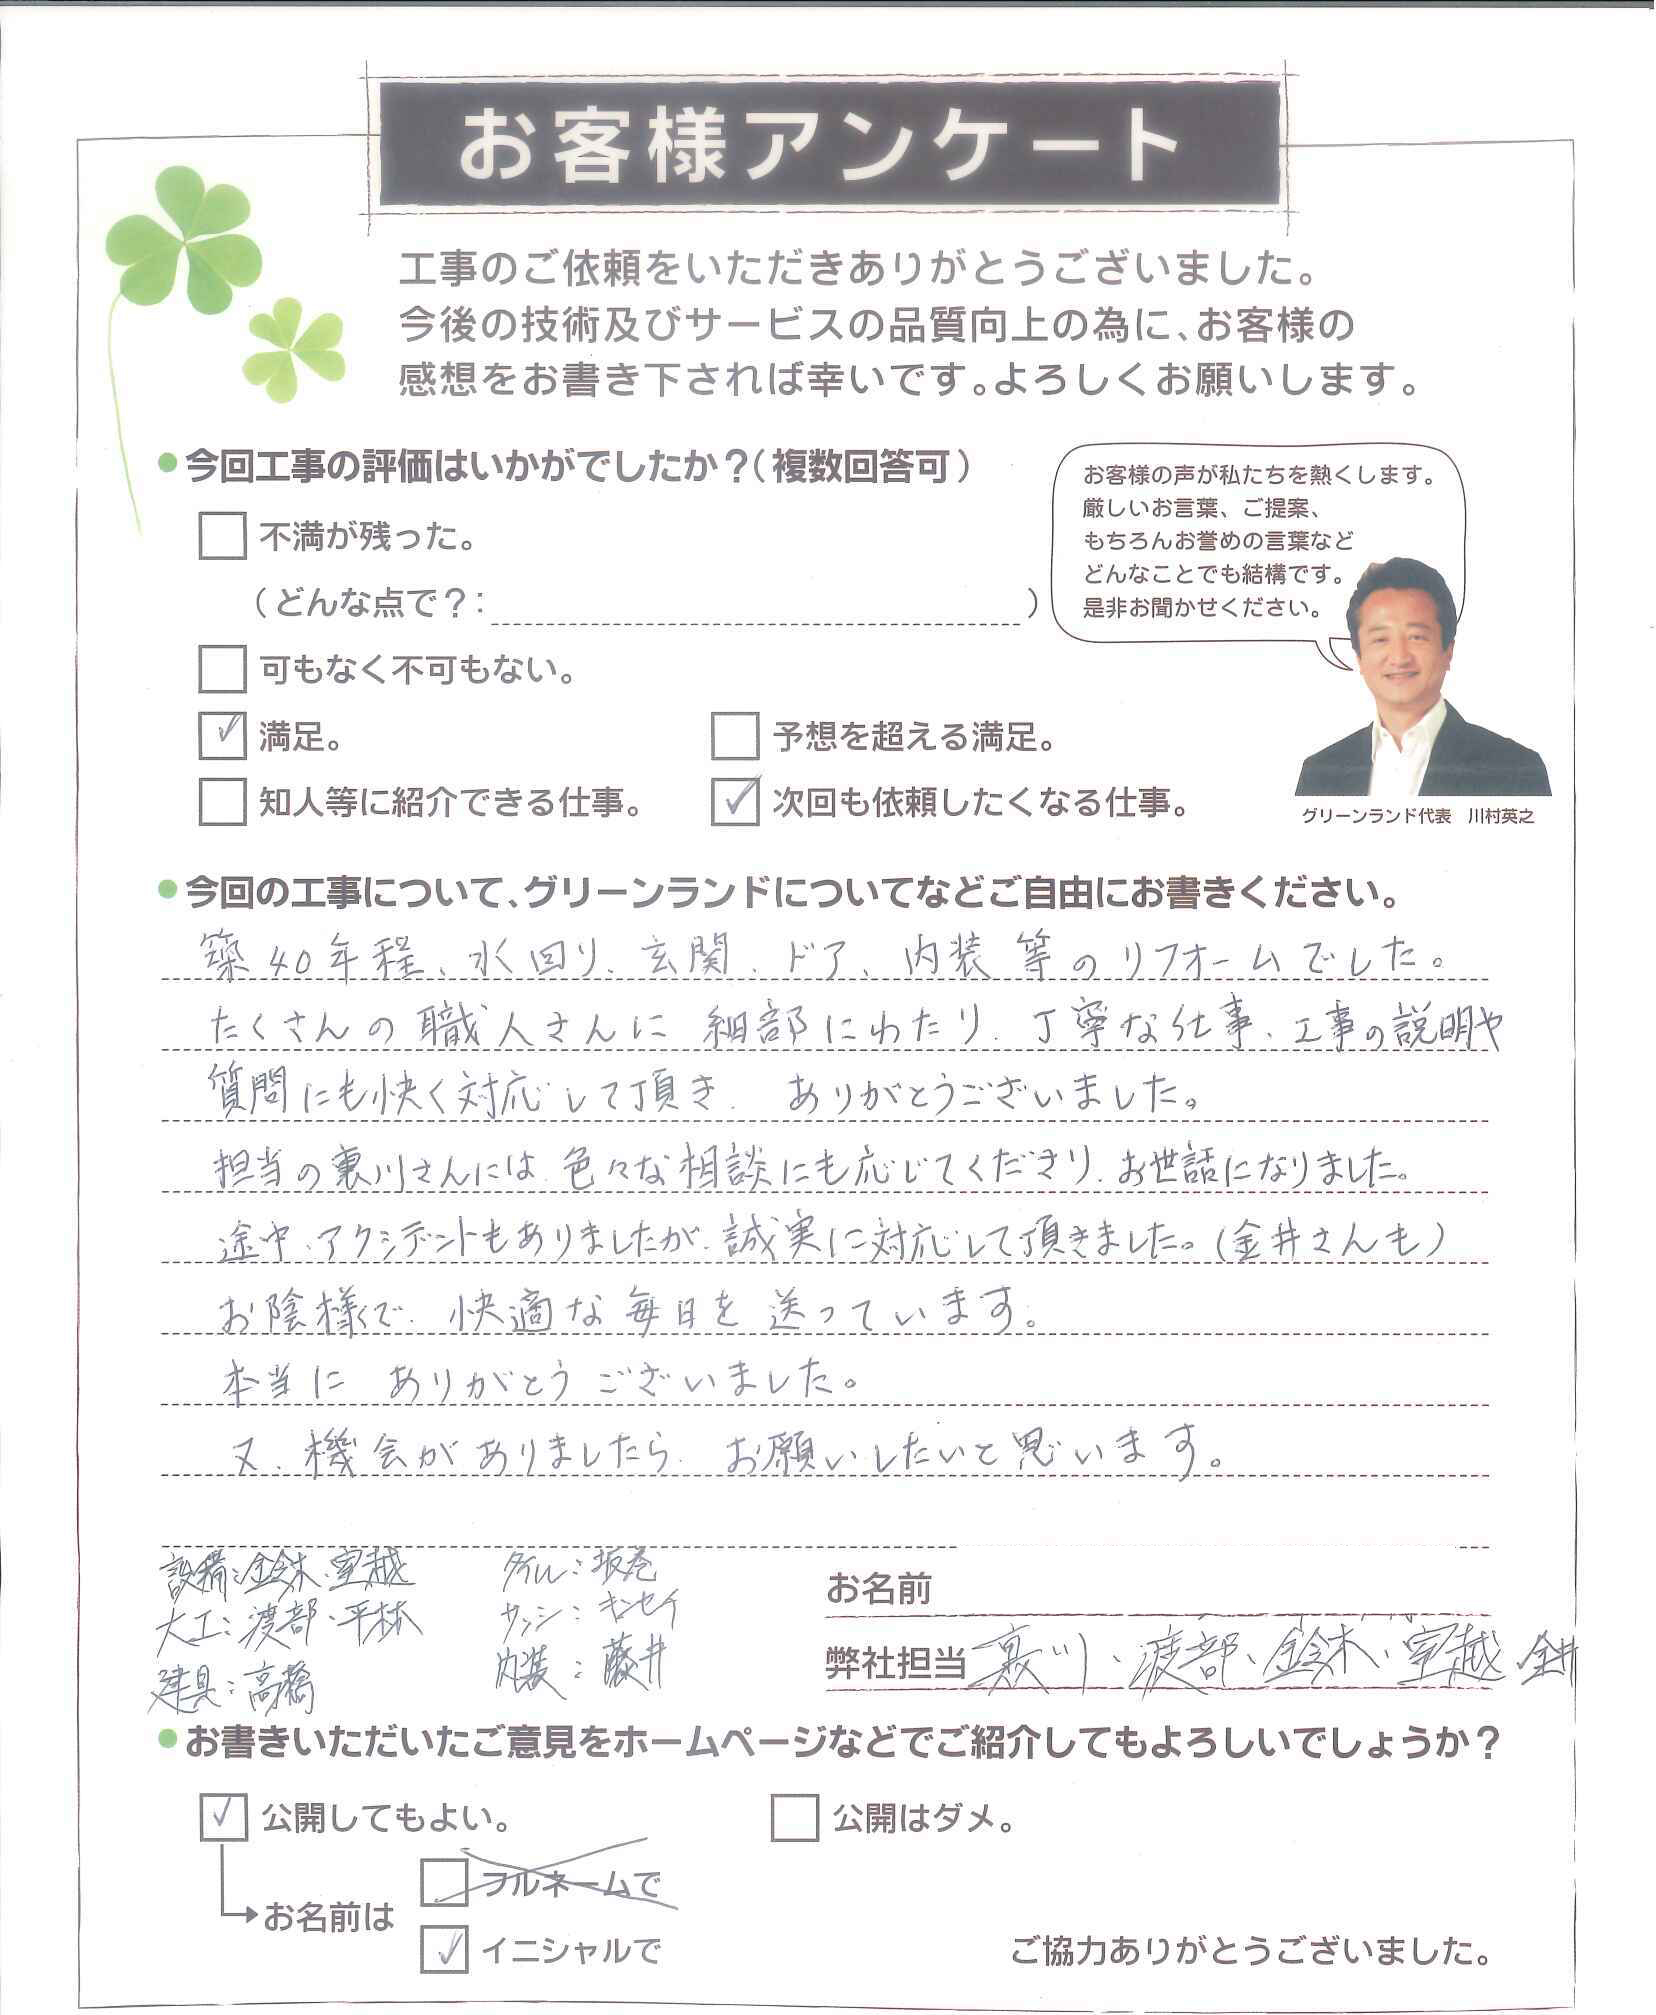 お客様アンケート
工事のご依頼をいただきありがとうございました。
今後の技術及びサービスの品質向上の為に、お客様の
感想をお書き下されば幸いです。よろしくお願いします。
今回工事の評価はいかがでしたか？（複数回答可）
不満が残った。
（どんな点で？：　　　）
可もなく不可もない。
満足。
予想を超える満足。
知人等に紹介できる仕事。
次回も依頼したくなる仕事。
お客様の声が私たちを熱くします。
厳しいお言葉、ご提案、
もちろんお誉めの言葉など
どんなことでも結構です。
是非お聞かせください。
グリーンランド代表　川村英之
今回の工事について、グリーンランドについてなどご自由にお書きください。
築40年程、水回り、玄関、ドア、内装等のリフォームでした。
たくさんの職人さんに細部にわたり、丁寧な仕事、工事の説明や
質問にも快く対応して頂き、ありがとうございました。
担当の裏川さんには、色々な相談にも応じてくださり、お世話になりました。
途中、アクシデントもありましたが、誠実に対応して頂きました。（金井さんも）
お陰様で、快適な毎日を送っています。
本当に ありがとうございました。
又、機会がありましたら、お願いしたいと思います。
設備：鈴木、室越
大工：渡部・平林
建具：高橋
タイル：坂巻
サッシ：キンセイ
内装：藤井
お名前
弊社担当 裏川、渡部、鈴木、室越、金井
お書きいただいたご意見をホームページなどでご紹介してもよろしいでしょうか？
公開してもよい。
公開はダメ。
お名前は
フルネームで
イニシャルで
ご協力ありがとうございました。